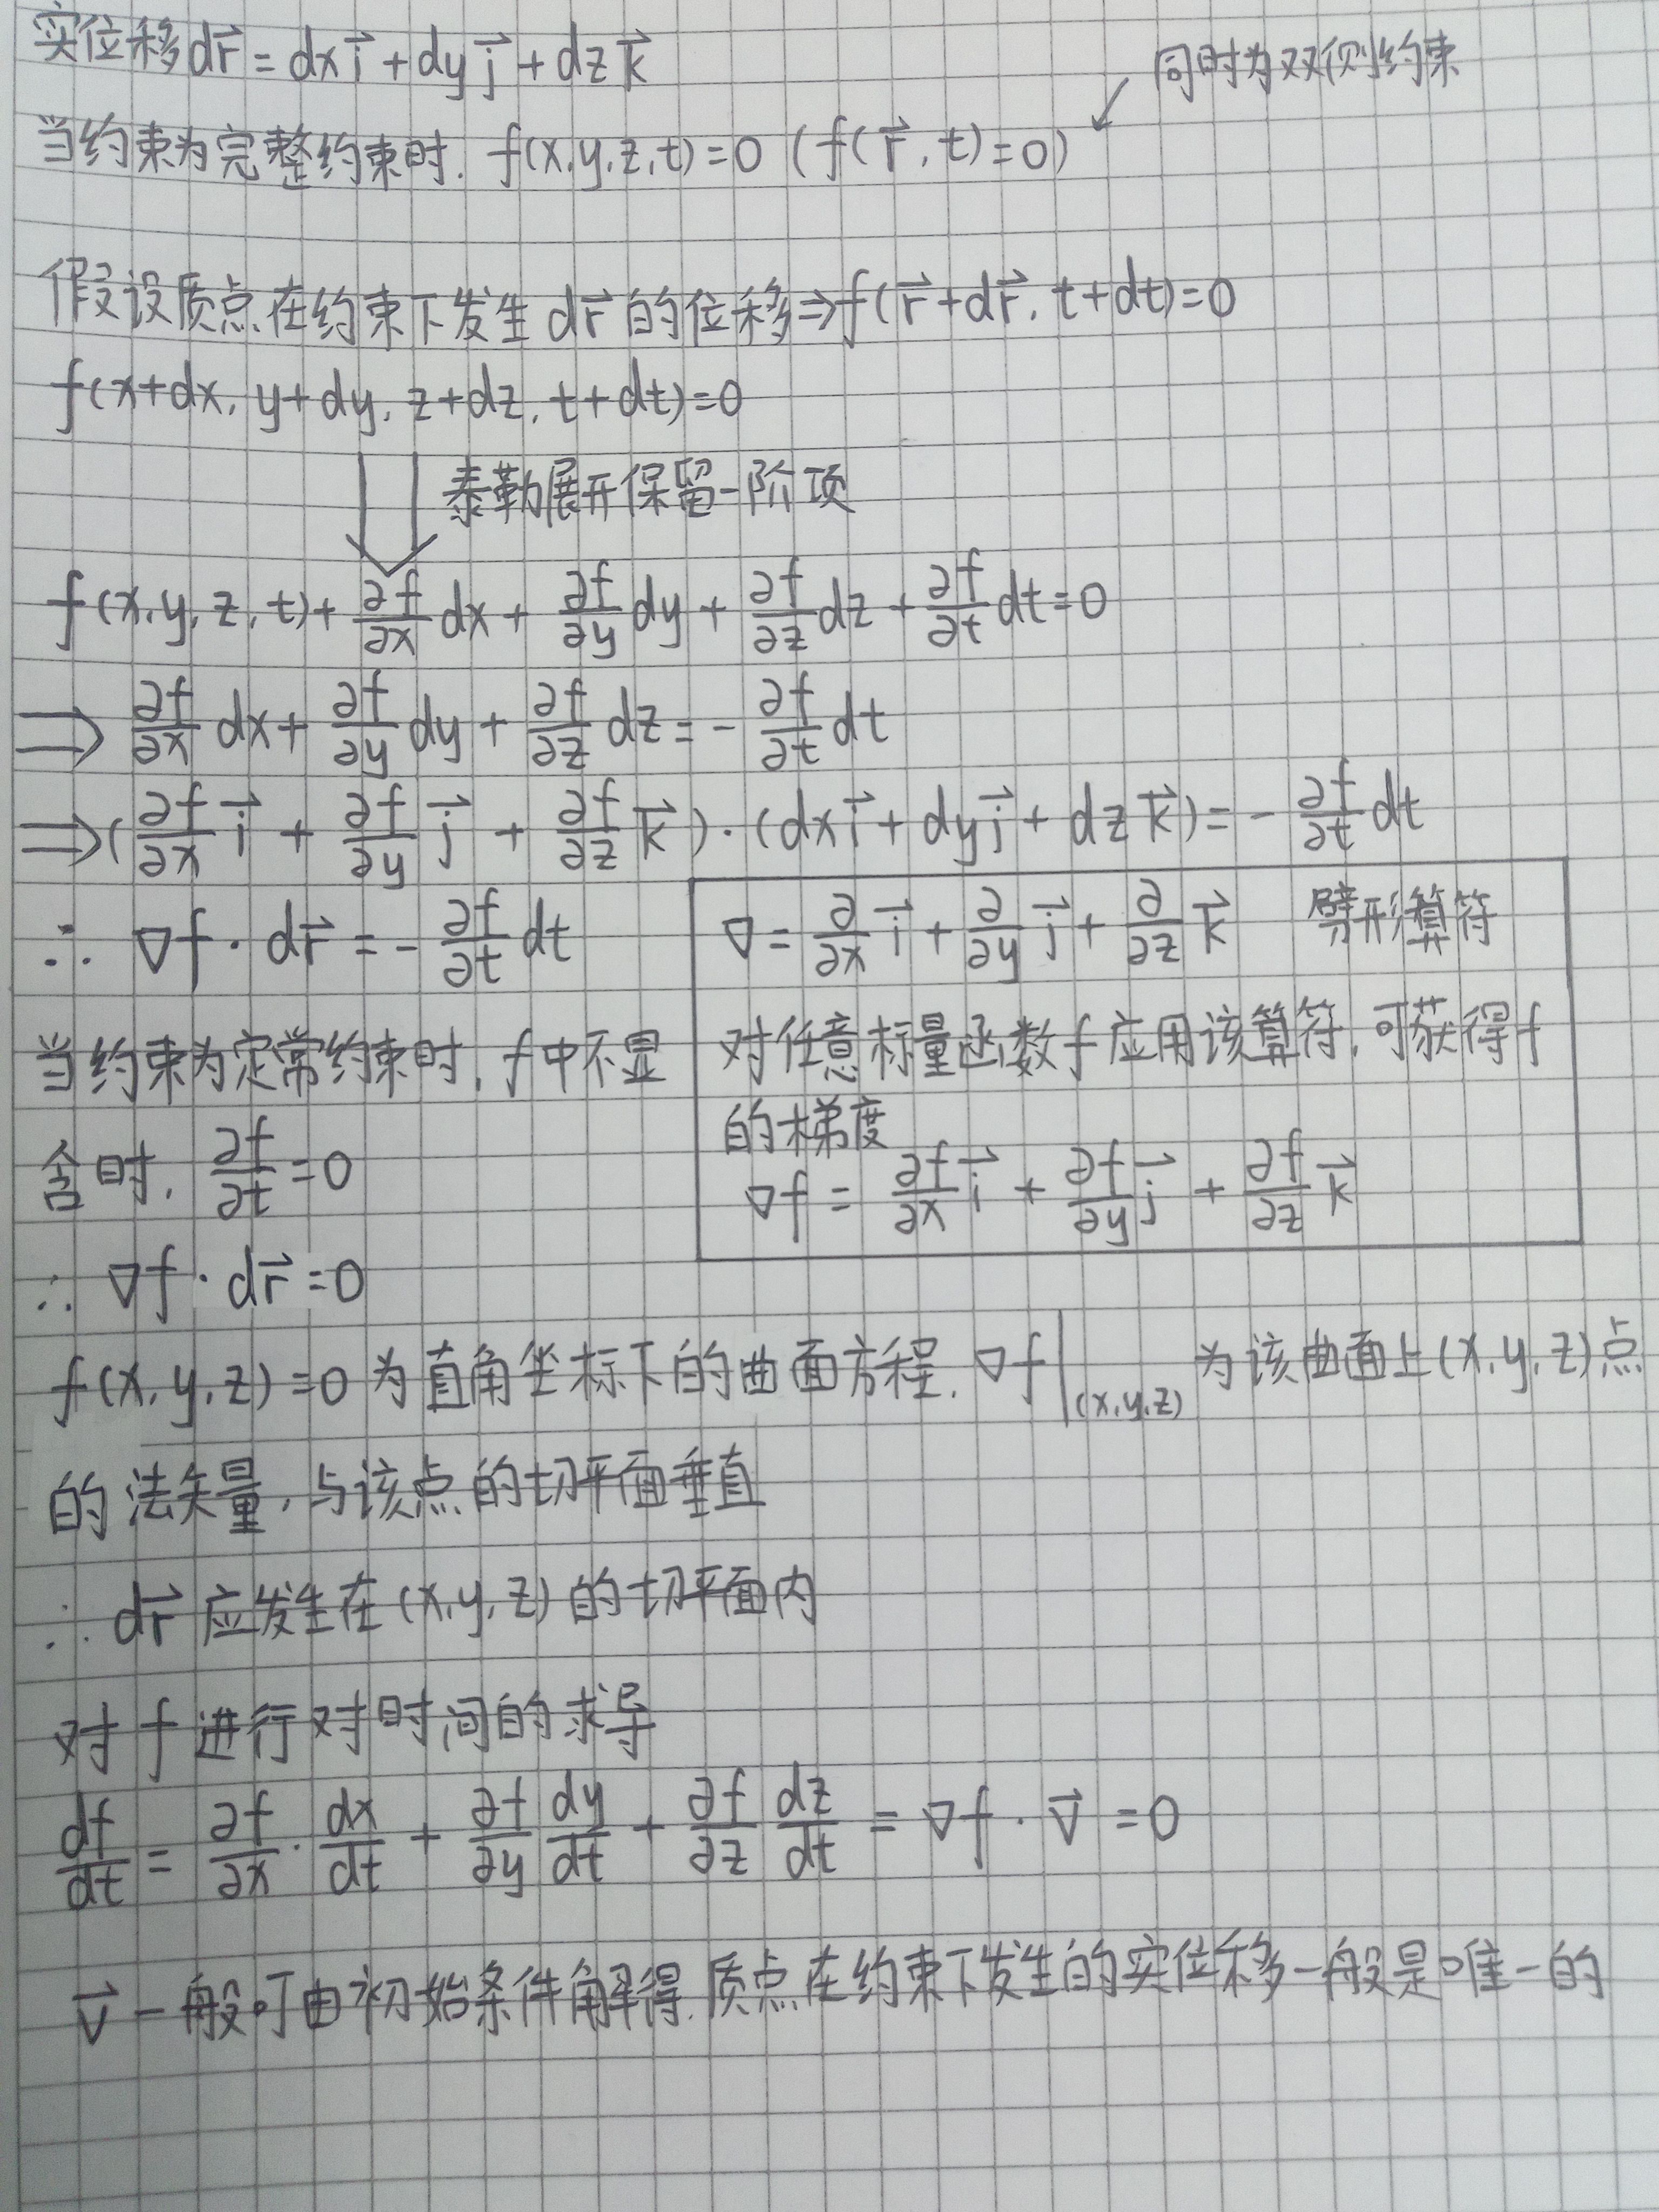 实位移d\vec{r} = dx\vec{i} + dy\vec{j} + dz\vec{k}
同时为双侧约束
当约束为完整约束时. f(x,y,z,t)=0 (f(\vec{r}, t)=0)
假设质点在约束下发生d\vec{r}的位移⇒f(\vec{r}+d\vec{r}, t+dt)=0
f(x+dx, y+dy, z+dz, t+dt)=0
泰勒展开保留一阶项
f(x,y,z,t)+ \frac{∂f}{∂x}dx + \frac{∂f}{∂y}dy + \frac{∂f}{∂z}dz + \frac{∂f}{∂t}dt=0
⇒ \frac{∂f}{∂x}dx + \frac{∂f}{∂y}dy + \frac{∂f}{∂z}dz = -\frac{∂f}{∂t}dt
⇒(\frac{∂f}{∂x}\vec{i} + \frac{∂f}{∂y}\vec{j} + \frac{∂f}{∂z}\vec{k})·(dx\vec{i} + dy\vec{j} + dz\vec{k})= -\frac{∂f}{∂t}dt
∴ ∇f · d\vec{r} = -\frac{∂f}{∂t}dt
∇= \frac{∂}{∂x}\vec{i} + \frac{∂}{∂y}\vec{j} + \frac{∂}{∂z}\vec{k} 劈形算符
对任意标量函数f应用该算符,可获得f
的梯度
∇f = \frac{∂f}{∂x}\vec{i} + \frac{∂f}{∂y}\vec{j} + \frac{∂f}{∂z}\vec{k}
当约束为定常约束时, f中不显
含时, \frac{∂f}{∂t}=0
∴ ∇f · d\vec{r}=0
f(x,y,z)=0为直角坐标下的曲面方程. ∇f|_{(x,y,z)}为该曲面上(x,y,z)点
的法矢量,与该点的切平面垂直
∴ d\vec{r}应发生在(x,y,z)的切平面内
对f进行对时间的求导
\frac{df}{dt} = \frac{∂f}{∂x}·\frac{dx}{dt} + \frac{∂f}{∂y}\frac{dy}{dt} + \frac{∂f}{∂z}\frac{dz}{dt} = ∇f · \vec{v} = 0
\vec{v}一般可由初始条件解得.质点在约束下发生的实位移一般是唯一的